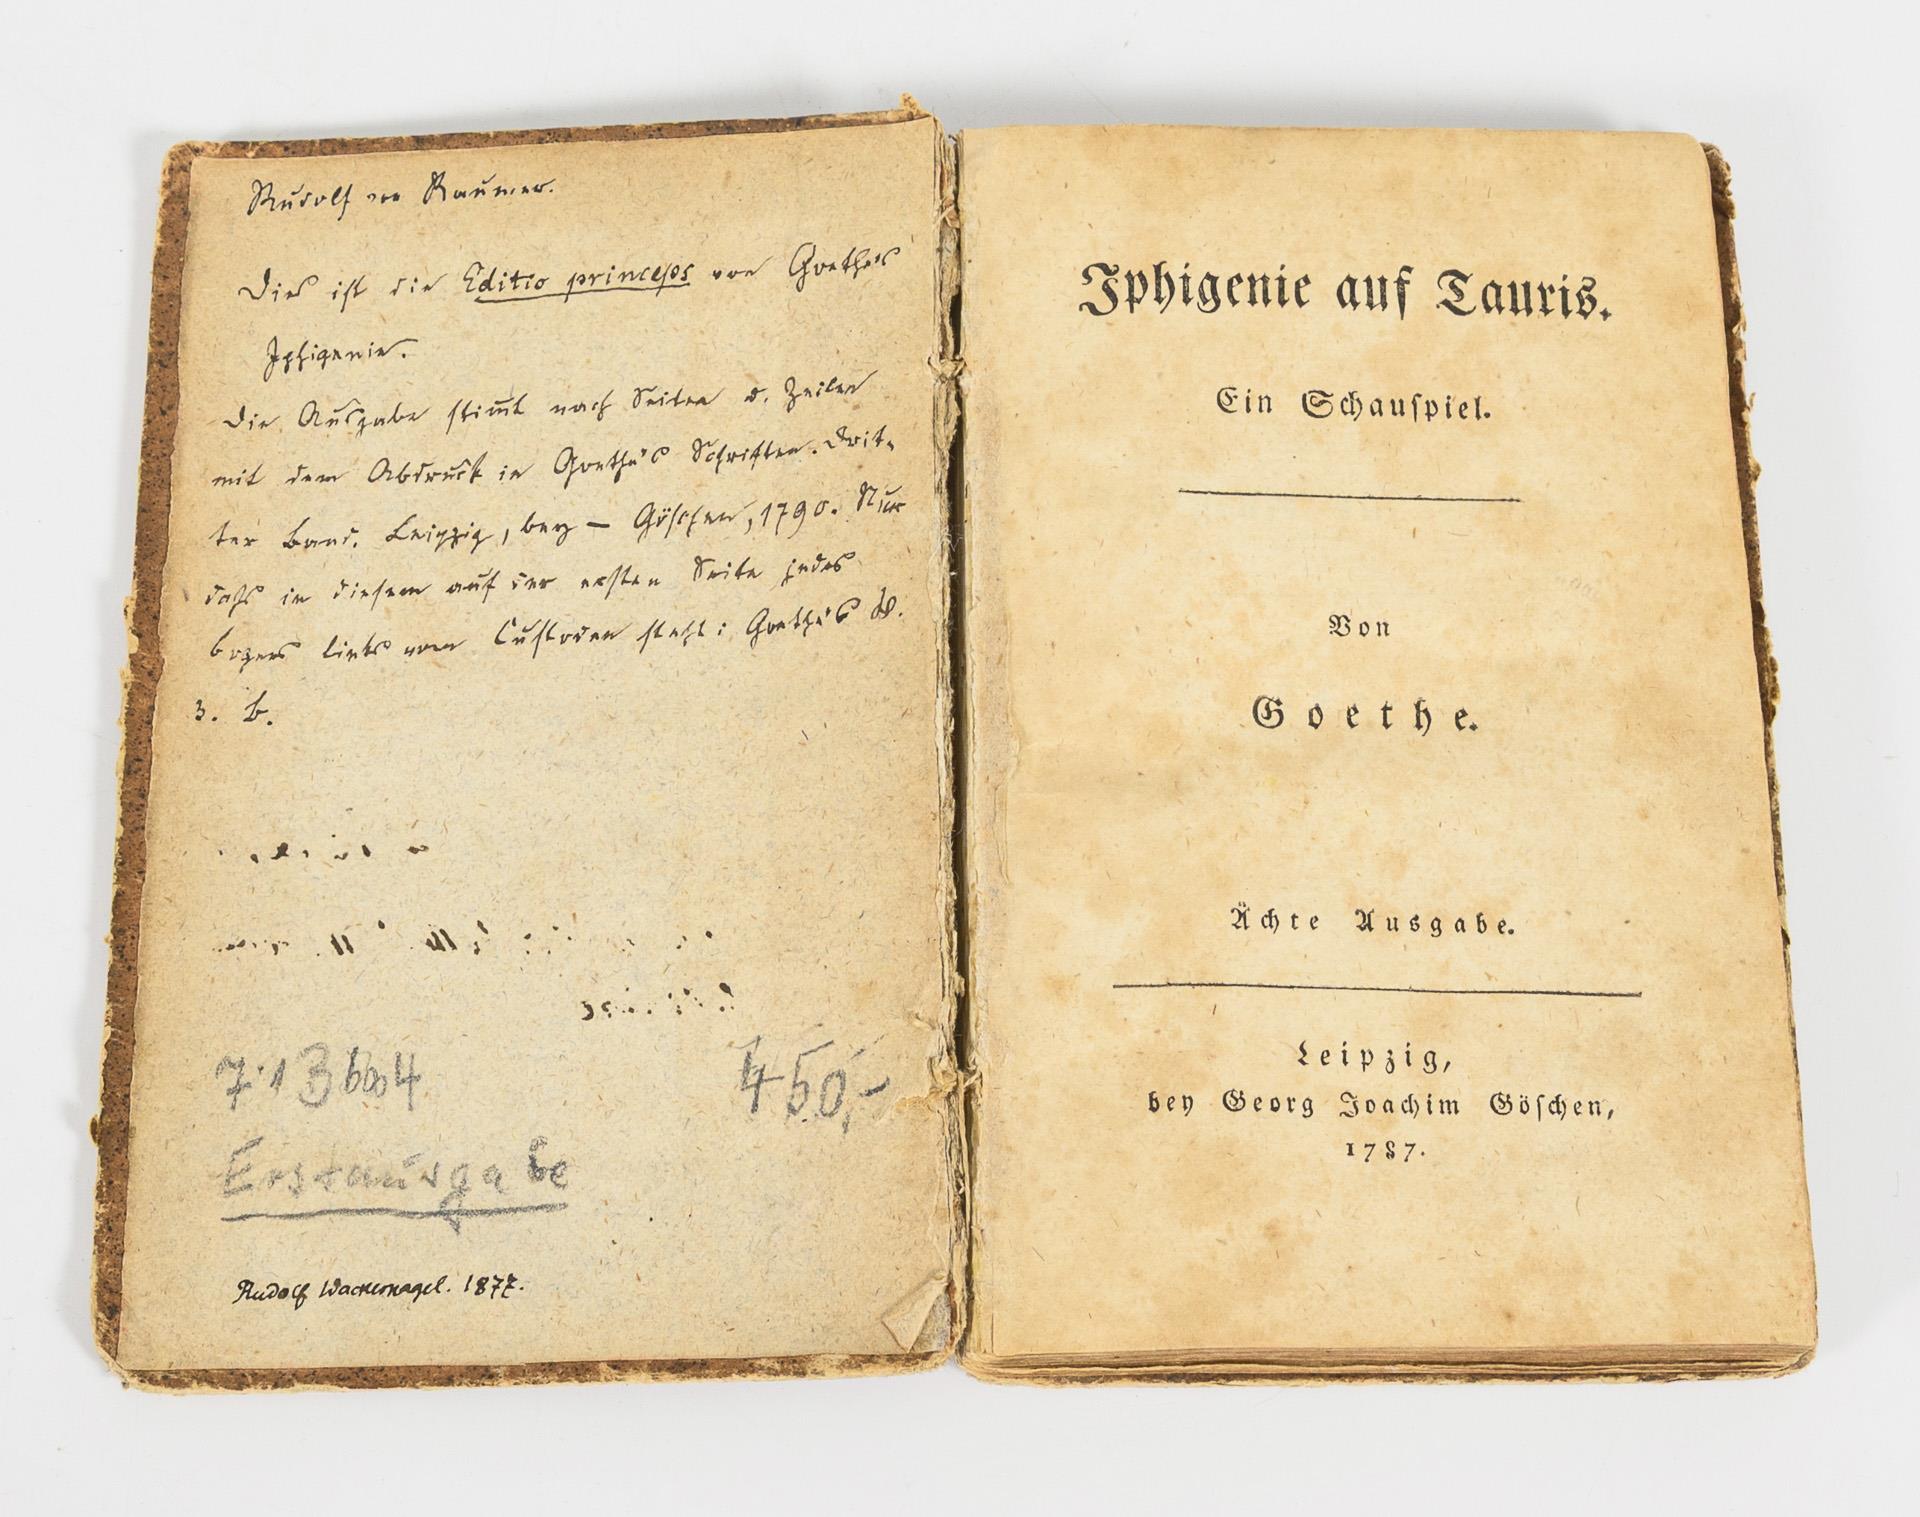 Rudolf von Raumer.
Dies ist die Editio princeps von Goethes
Iphigenie.
Die Ausgabe stimt nach Seiten u. Zeilen
mit dem Abdruck in Goethe's Schriften. Drit-
ter Band. Leipzig, bey – Göschen, 1790. Nur
daß in diesem auf der ersten Seite jedes
Bogens links vom Custoden steht: Goethe's W.
3. B.
450,-
Erstausgabe
Rudolf Wackernagel. 1877.
Iphigenie auf Tauris.
Ein Schauspiel.
Von
Goethe.
Ächte Ausgabe.
Leipzig,
bey Georg Joachim Göschen,
1787.